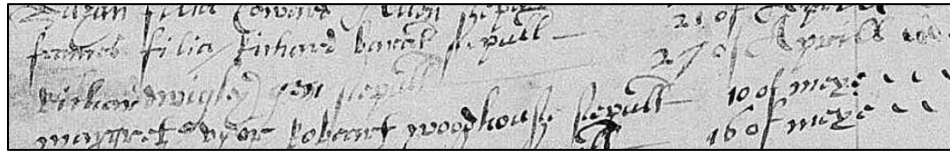 Susan filia Edward Allen sepult 21 of Aprill
frances filia Richard sepult 27 of Aprill
Richard wigley gen sepult 10 of meye
margret uxor Robeart woodhouse sepult 16 of meye